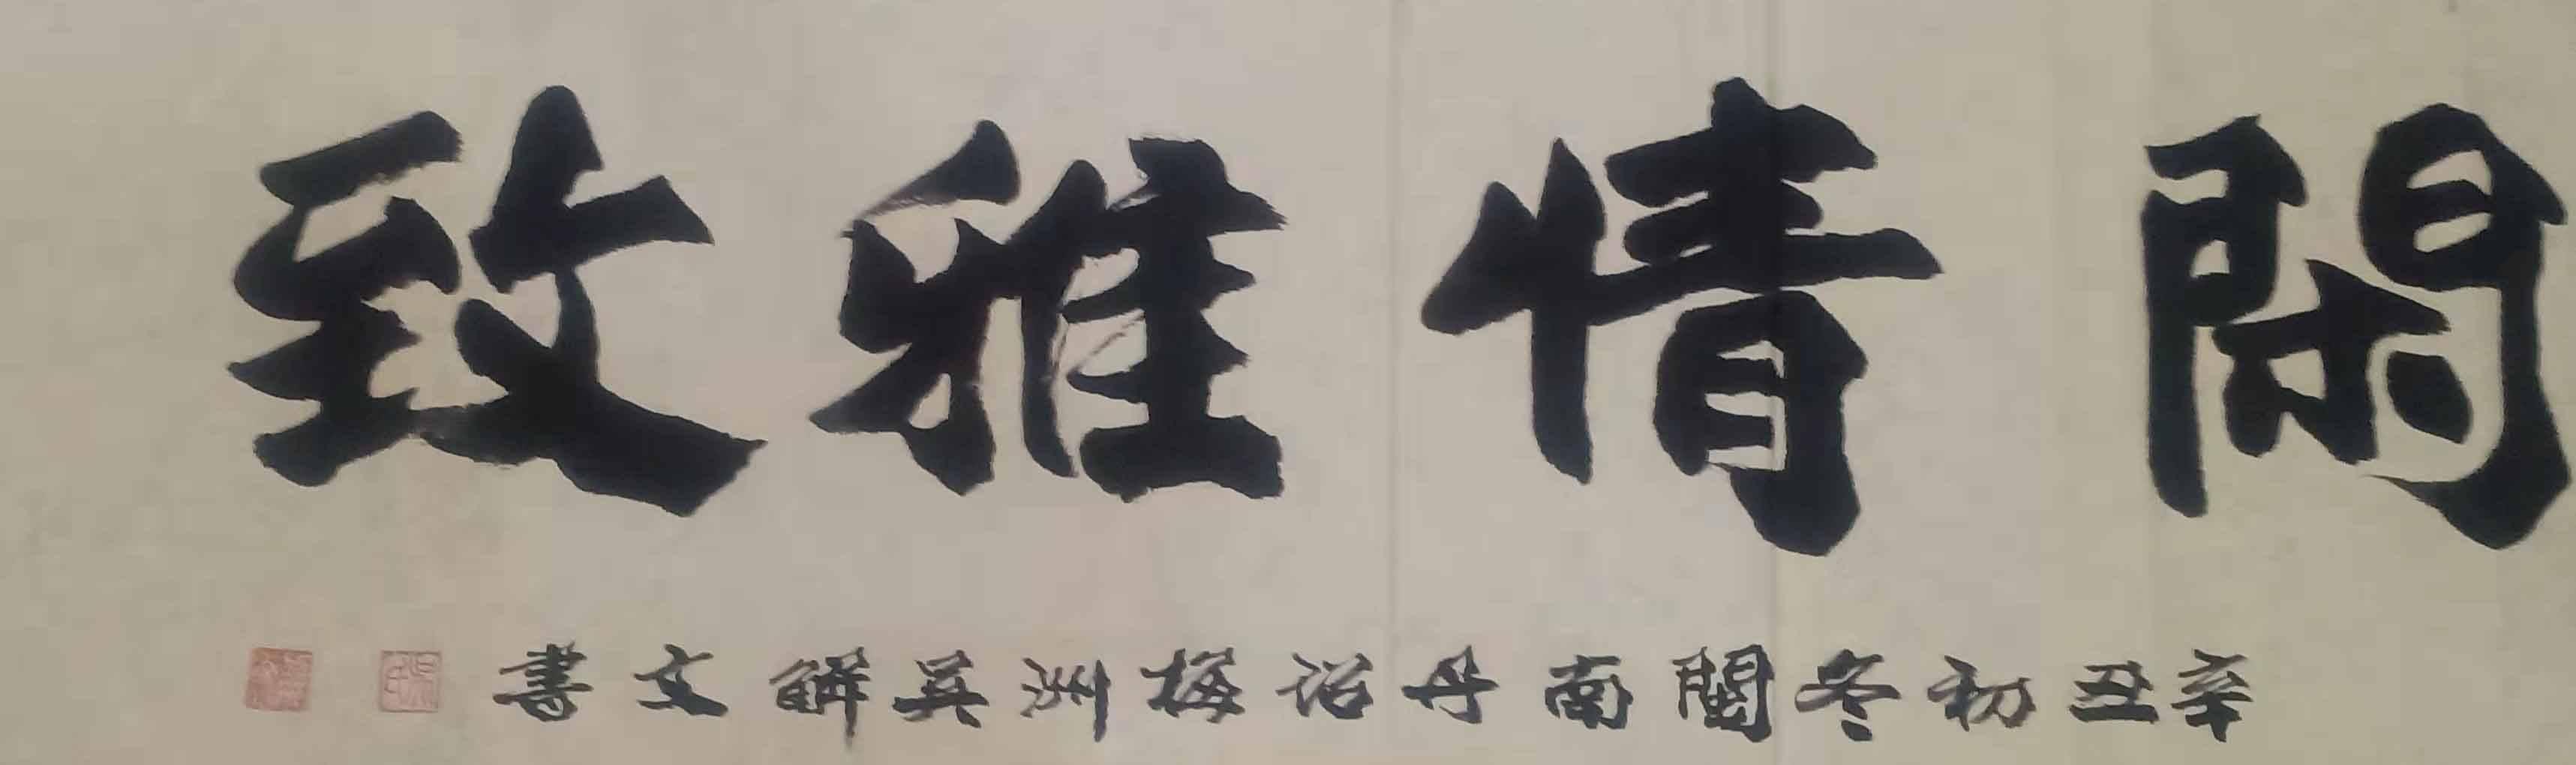 閑情雅致
辛丑初冬閩南丹詔梅洲吳解文書